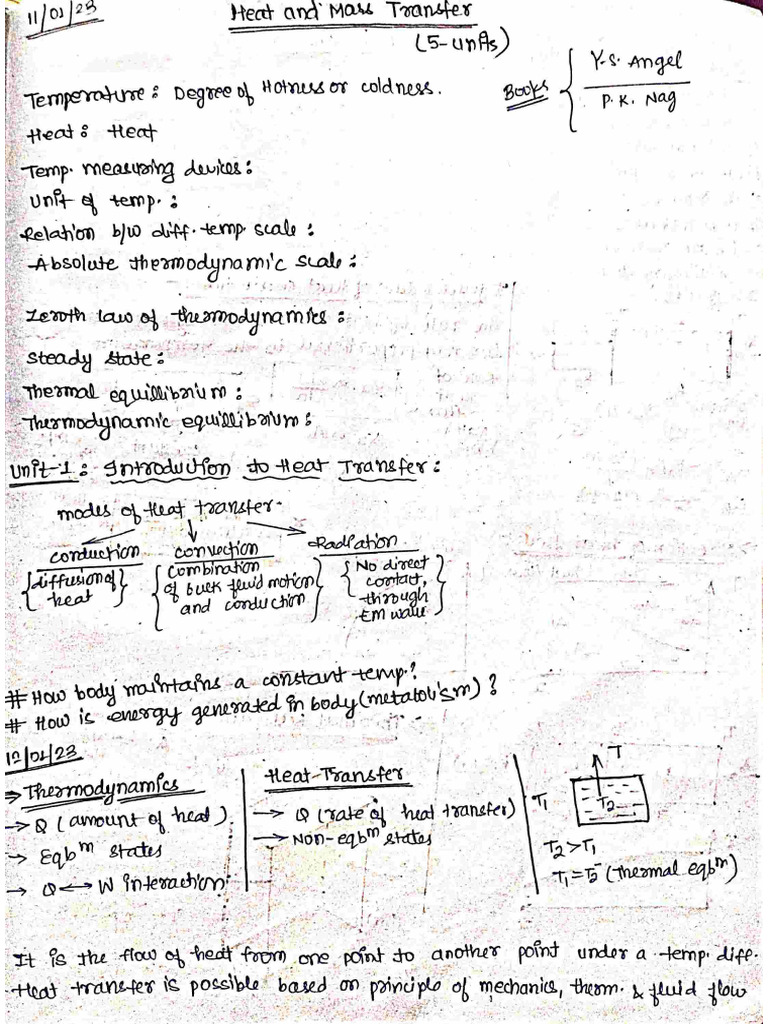 11/01/23
Heat and Mass Transfer
(5-units)
Books
Y.S. Angel
P.K. Nag
Temperature: Degree of Hotness or coldness.
Heat: Heat
Temp. measuring devices:
Unit of temp.:
Relation b/w diff. temp scale:
Absolute thermodynamic scale:
Zeroth law of thermodynamics:
Steady state:
Thermal equillibrium:
Thermodynamic equillibrium:
Unit-1: Introduction to Heat Transfer:
modes of Heat transfer.
conduction
{diffusion of
heat}
convection
{Combination
of buck fluid motion
and conduction}
Radiation
{No direct
contact,
through
EM wave}
# How body maintains a constant temp.?
# How is energy generated in body (metabolism)?
12/01/23
→ Thermodynamics
→ Q (amount of heat).
→ Eqbᵐ states
→ Q ↔ W interaction
Heat Transfer
→ Q (rate of heat transfer)
→ Non-eqbᵐ states
T
T₁
T₂
T₂ > T₁
T₁ = T₂ (thermal eqbᵐ)
It is the flow of heat from one point to another point under a temp. diff.
Heat transfer is possible based on principle of mechanics, therm. & fluid flow